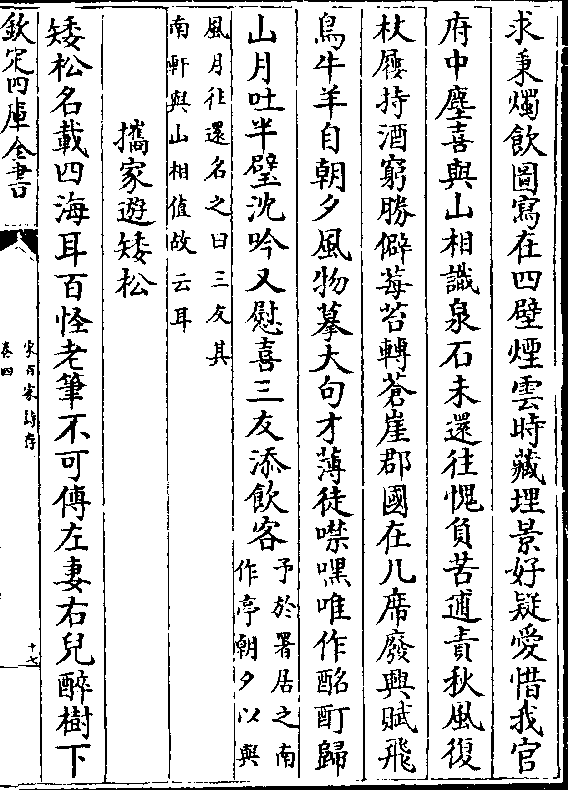 求秉燭飲圖寫在四壁煙雲時藏埋景好疑愛惜我官
府中塵喜與山相識泉石未還往愧負苦逋責秋風復
杖屨持酒窮勝僻莓苔轉蒼崖郡國在几席廢興賦飛
鳥牛羊自朝夕風物摹大句才薄徒噤嘿唯作酩酊歸
山月吐半璧沈吟又慰喜三友添飲客予於署居之南作亭朝夕以與
風月往還名之曰三友其南軒與山相值故云耳
攜家遊矮松
矮松名載四海耳百怪老筆不可傳左妻右兒醉樹下
欽定四庫全書
宋百家詩存
卷四
十七